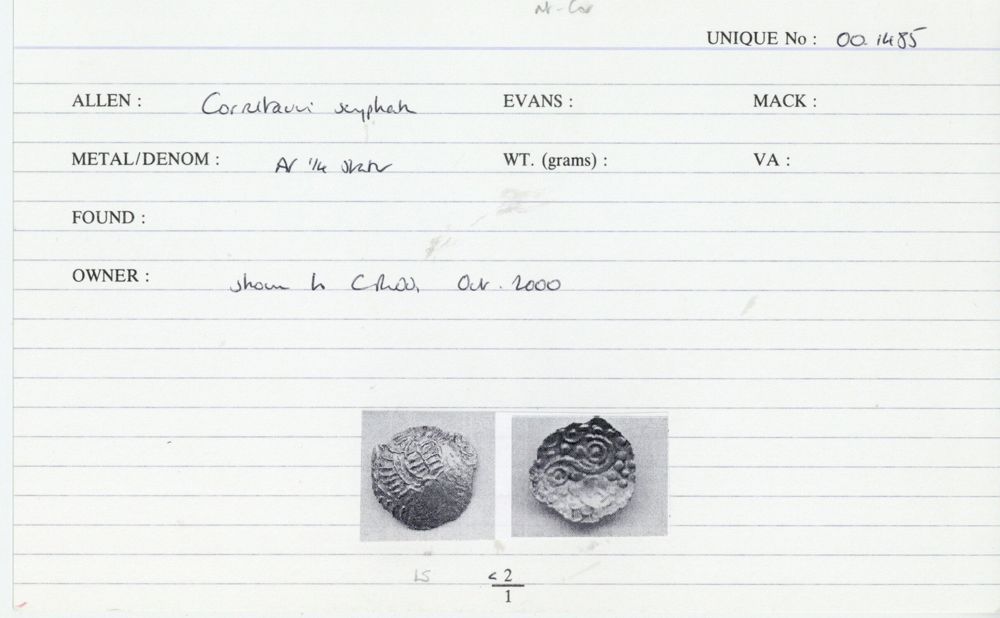 UNIQUE No : 00.1485
ALLEN : Corieltauvi scyphate EVANS : MACK :
METAL/DENOM : AV 1/4 stater WT. (grams) : VA :
FOUND :
OWNER : shown to Oct. 2000
LS < 2
1